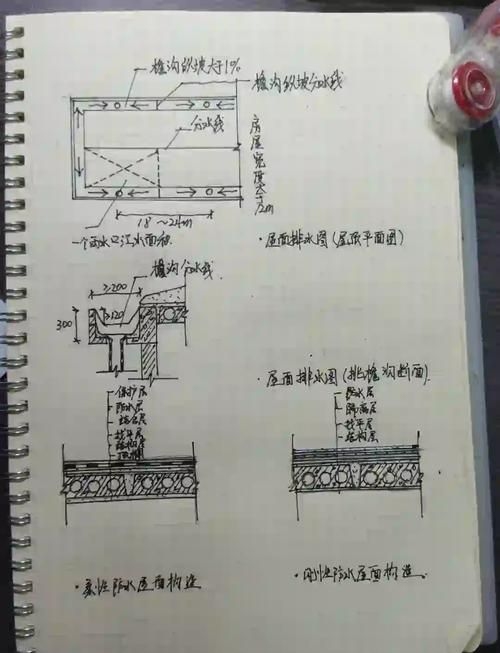 檐沟纵坡大于1%
檐沟纵坡分水线
分水线
房屋宽度大于12m
18～24m
一个雨水口汇水面积
·屋面排水图(屋顶平面图)
檐沟分水线
≥200
≥120
300
·屋面排水图(挑檐沟断面).
保护层
防水层
结合层
找平层
结构层
顶棚
防水层
隔离层
找平层
结构层
·柔性防水屋面构造
·刚性防水屋面构造。